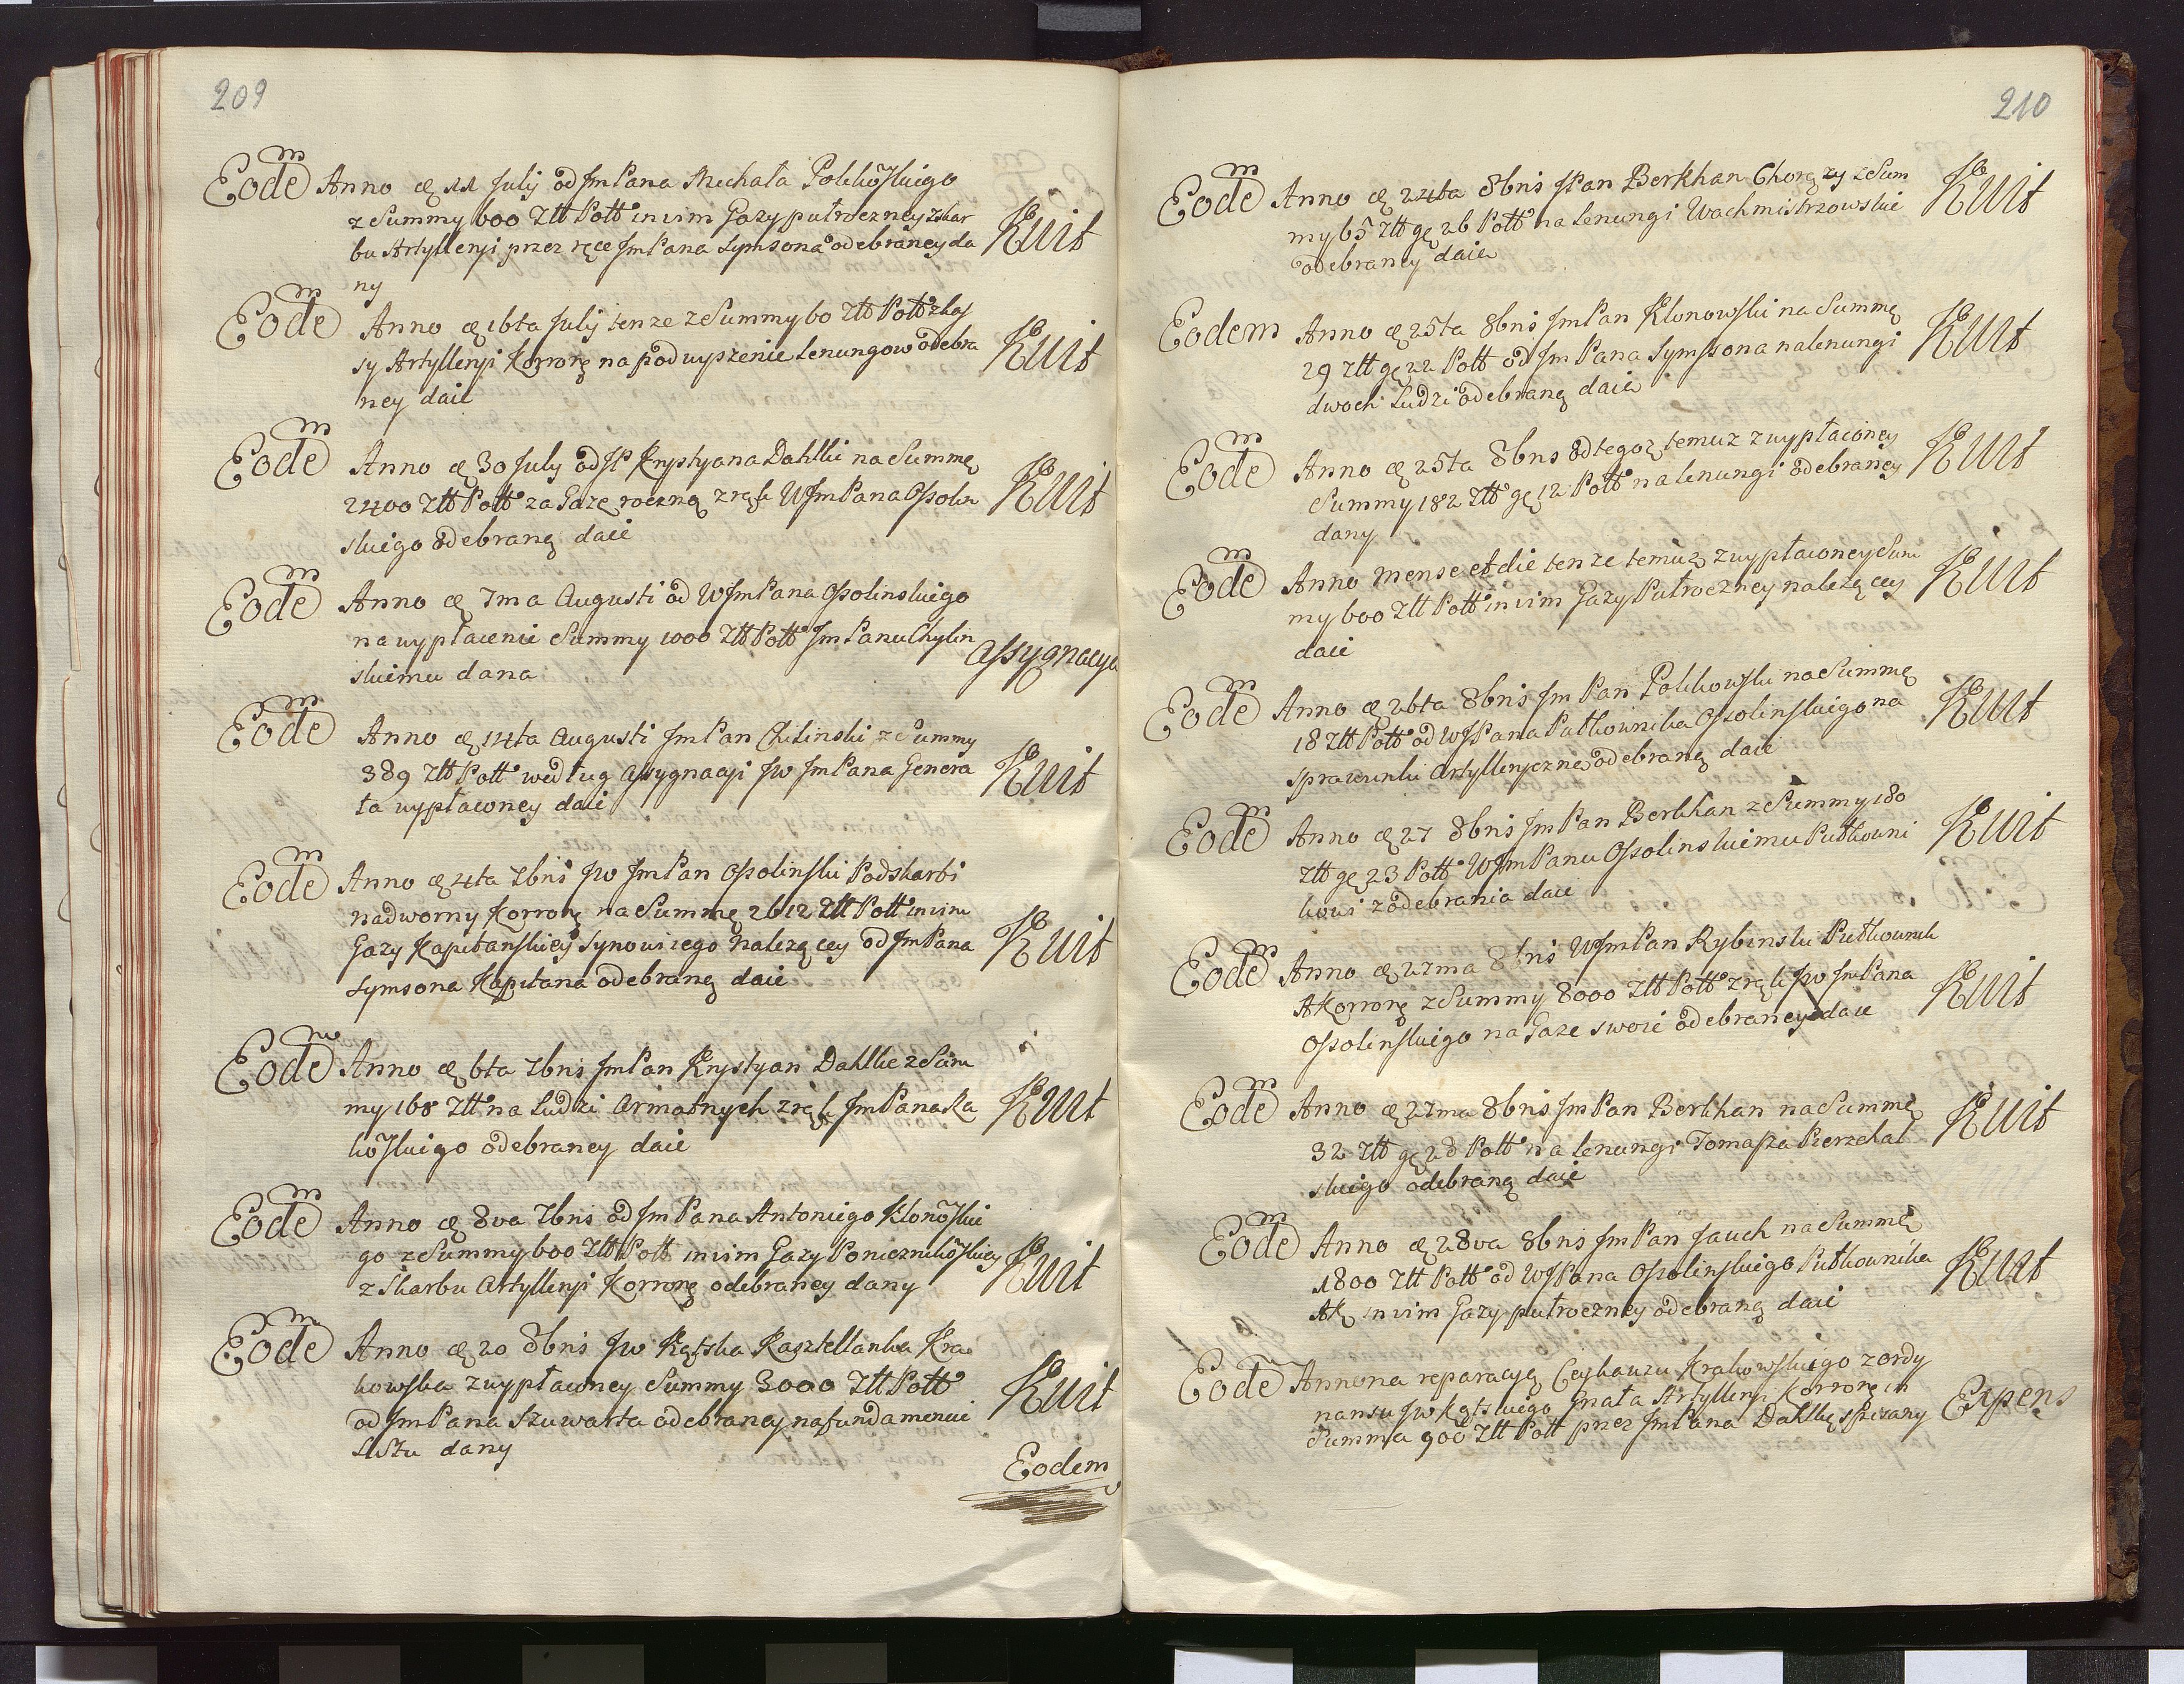 209
Eodem Anno ꝙ 11 July od JmPana Michała Polckowskiego
z Summy 600 Złł Poll in vim Gazy pułroczney z skar
bu Artylleryi przez ręce JmPana Symsona odebraney da
ny
Kwit
Eodem Anno ꝙ 16ta July tenze z Summy 60 Złł Poll z kas
sy Artylleryi Korronę na podwyszenie Lenungow odebra
ney daie
Kwit
Eodem Anno ꝙ 30 July od JP Krystyana Dahlki na Summę
2400 Złł Poll za Gazę roczną z rąk WJmPana Ossolin
skiego odebraną daie
Kwit
Eodem Anno ꝙ 7ma Augusti od WJmPana Ossolinskiego
na wypłacenie Summy 1000 Złł Poll JmPanu Chylin
skiemu dana
Assygnacya
Eodem Anno ꝙ 14ta Augusti JmPan Chilinski z Summy
389 Złł Poll według Assygnacyi JW JmPana Genera
ła wypłaconey daie
Kwit
Eodem Anno ꝙ 4ta 7bris JW JmPan Ossolinski Podskarbi
nadworny Korronę na Summę 2612 Złł Poll in vim
Gazy Kapitanskiey Synowi iego nalezącey od JmPana
Symsona Kapitana odebraną daie
Kwit
Eodem Anno ꝙ 6ta 7bris JmPan Krystyan Dahlke z Sum
my 168 Złł na Ludzi Armatnych z rąk JmPana Ra
kowskiego odebraney daie
Kwit
Eodem Anno ꝙ 8va 7bris od JmPana Antoniego Klonowskie
go z Summy 600 Złł Poll in vim Gazy Porucznikowskiey
z Skarbu Artylleryi Korronę odebraney dany
Kwit
Eodem Anno ꝙ 20 8bris JW Kątska Kasztellanka Kra
kowska z wypłaconey Summy 3000 Złł Poll
od JmPana Szuwarta odebraney na fundamencie
Listu dany
Kwit
Eodem
210
Eodem Anno ꝙ 24ta 8bris JPan Berkhan Chorązy z Sum
my 65 Złł gę 26 Poll na lenungi Wachmistrzowskie
odebraney daie
Kwit
Eodem Anno ꝙ 25ta 8bris JmPan Klonowski na Summę
29 Złł gę 22 Poll od JmPana Symssona na lenungi
dwoch Ludzi odebraną daie
Kwit
Eodem Anno ꝙ 25ta 8bris od tegoz temuz z wypłaconey
Summy 182 Złł gę 12 Poll na lenungi odebraney
dany
Kwit
Eodem Anno Mense et die tenze temuz z wypłaconey Sum
my 600 Złł Poll in vim Gazy Pułroczney nalezącey
daie
Kwit
Eodem Anno ꝙ 26ta 8bris JmPan Polckowski na Summę
18 Złł Poll od WJPana Pułkownika Ossolinskiego na
sprawunki Artylleryczne odebraną daie
Kwit
Eodem Anno ꝙ 27 8bris JmPan Berkhan z Summy 180
Złł gę 23 Poll WJmPanu Ossolinskiemu Pułkowni
kowi z odebrania daie
Kwit
Eodem Anno ꝙ 27ma 8bris WJmPan Rybinski Pułkownik
AKorronę z Summy 8000 Złł Poll z rąk JW JmPana
Ossolinskiego na Gaze swoie odebraney daie
Kwit
Eodem Anno ꝙ 27ma 8bris JmPan Berkhan na Summę
32 Złł gę 28 Poll na lenungi Tomasza Pierzchal
skiego odebraną daie
Kwit
Eodem Anno ꝙ 28va 8bris JmPan Jauch na Summę
1800 Złł Poll od WJPana Ossolinskiego Pułkownika
AK in vim Gazy pułroczney odebraną daie
Kwit
Eodem Anno na reparacyą Ceyhauzu Krakowskiego z ordy
nansu JW Kątskiego Gnała Artylleryi Korronę in
Summa 900 Złł Poll przez JmPana Dahlkę spisany
Expens